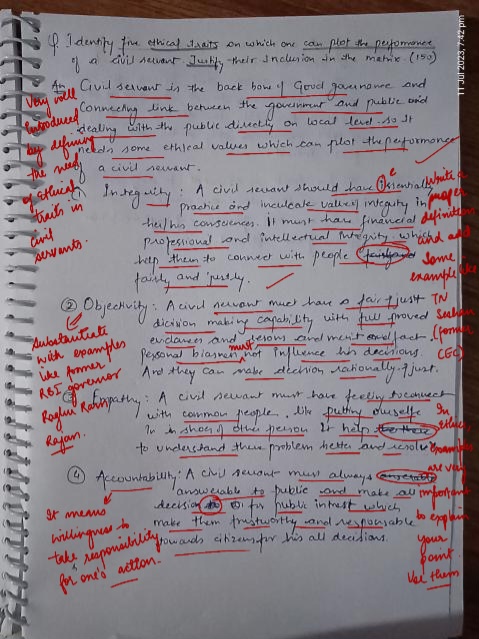 11 Jul 2023, 7:42 pm
Q. Identify five ethical traits on which one can plot the performance
of a civil servant. Justify their inclusion in the matrix. (150)
An Civil servant is the back bone of Good governance and
connecting link between the government and public and
dealing with the public directly on local level. so It
needs some ethical values which can plot the performance
of a civil servant.
Very well
introduced
by defining
the need
of ethical
traits in
civil
servants.
Integrity : A civil servant should have essentially
practice and inculcate values integrity in
her/his consciences. It must have financial
professional and intellectual integrity which
help them to connect with people
fairly and justly.
Write a
proper
definition
and add
some
example like
TN
Seshan
(former
CEC)
② Objectivity : A civil servant must have a fair & just
dicision making capability with full proved
evidances and and merit and fact.
Personal biasness must not influence his decisions.
And they can make decision rationally & just.
Substantiate
with examples
like former
RBI governor
Raghu Ram
Rajan.
Empathy : A civil servant must have feeling to connect
with common people. like putting ourselfe
In in shoes of other person It help
to understand them problem better and resolve
In
ethics,
examples
are very
important
to explain
your
point
Use them
④ Accountability : A civil servant must always
answerable to public and make all
decision for public intrest which
make them trustworthy and responsable
towards citizens for his all decisions.
It means
willingness to
take responsibility
for one's action.